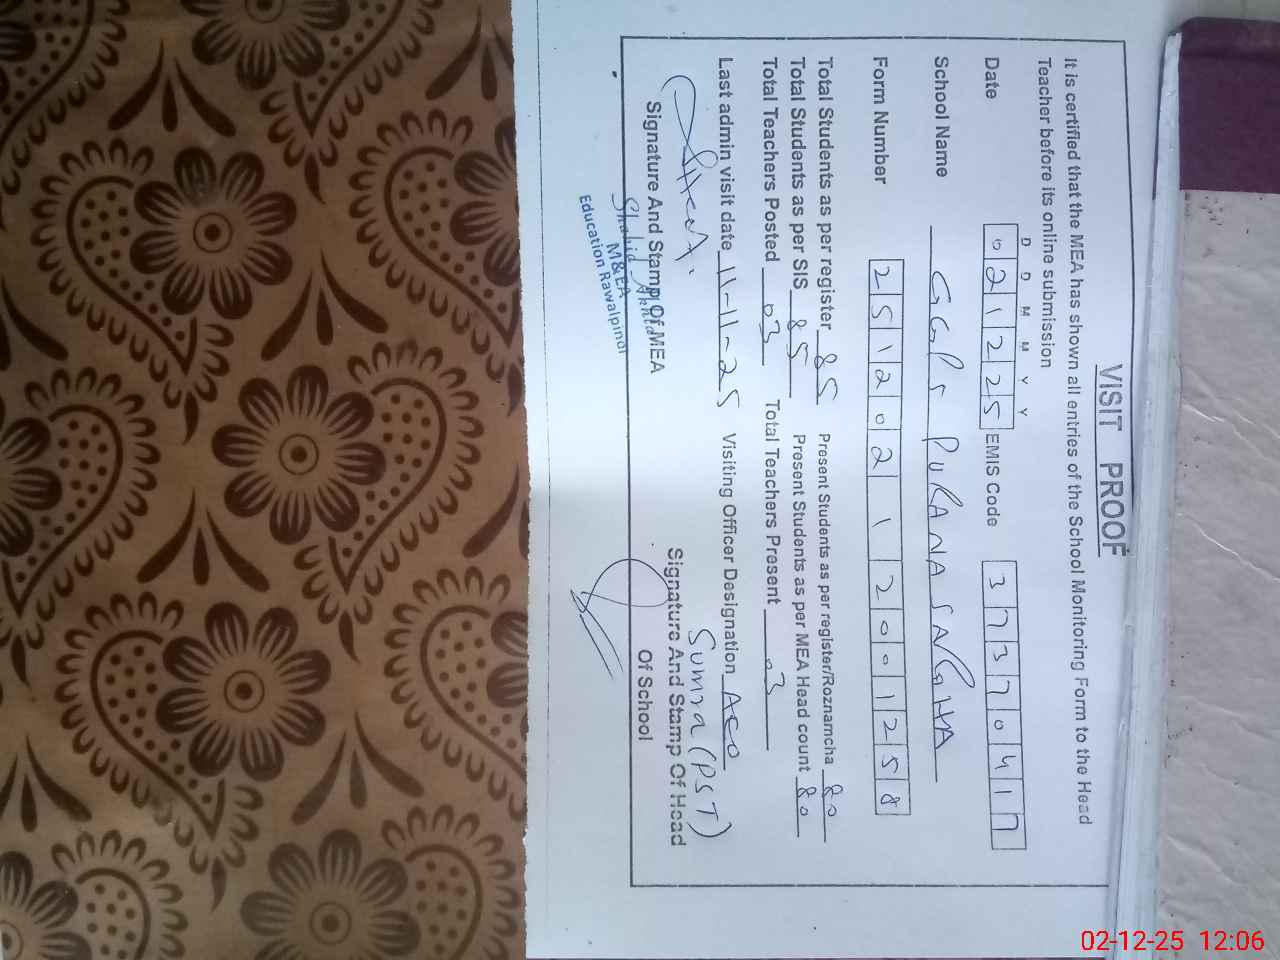 VISIT PROOF
It is certified that the MEA has shown all entries of the School Monitoring Form to the Head
Teacher before its online submission
D D M M Y Y
Date 0 2 1 2 2 5 EMIS Code 3 7 3 7 0 4 1 7
School Name GGPS PURANA SNGHA
Form Number 2 5 1 2 0 2 1 2 0 0 1 2 5 8
Total Students as per register 85 Present Students as per register/Roznamcha 80
Total Students as per SIS 85 Present Students as per MEA Head count 80
Total Teachers Posted 03 Total Teachers Present 03
Last admin visit date 11-11-25 Visiting Officer Designation AEO
(PST)
Signature And Stamp Of MEA
Signature And Stamp Of Head
Of School
Shahid
M&EA
Education Rawalpindi
02-12-25 12:06